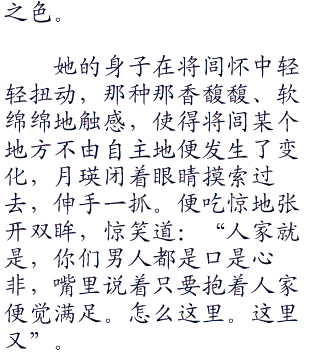 之色。
她的身子在将闾怀中轻
轻扭动，那种那香馥馥、软
绵绵地触感，使得将闾某个
地方不由自主地便发生了变
化，月瑛闭着眼睛摸索过
去，伸手一抓。便吃惊地张
开双眸，惊笑道：“人家就
是，你们男人都是口是心
非，嘴里说着只要抱着人家
便觉满足。怎么这里。这里
又”。